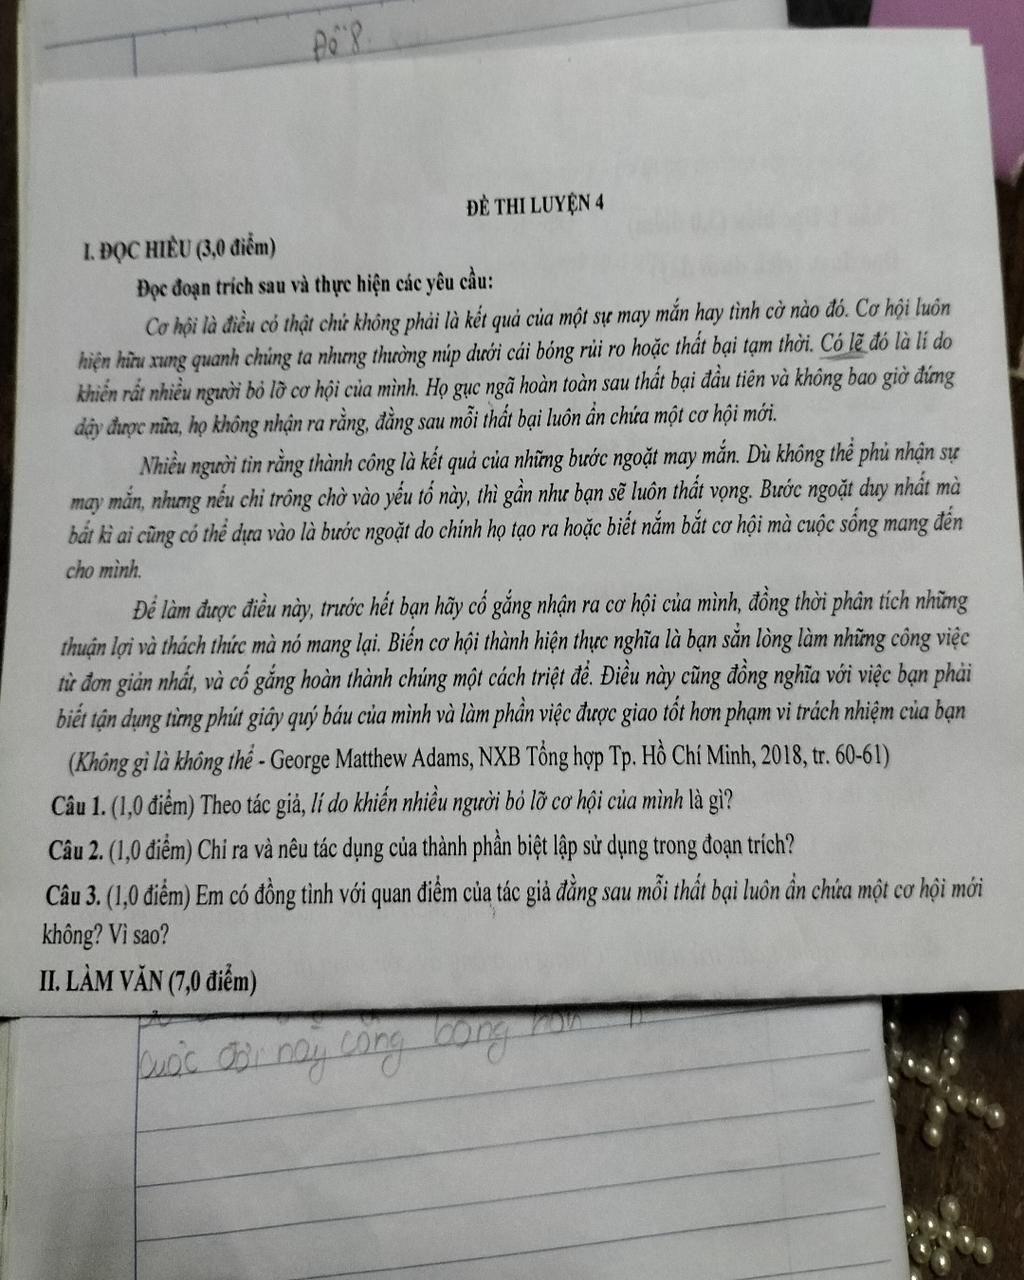 Đề 8
ĐỀ THI LUYỆN 4
I. ĐỌC HIỂU (3,0 điểm)
Đọc đoạn trích sau và thực hiện các yêu cầu:
Cơ hội là điều có thật chứ không phải là kết quả của một sự may mắn hay tình cờ nào đó. Cơ hội luôn
hiện hữu xung quanh chúng ta nhưng thường núp dưới cái bóng rủi ro hoặc thất bại tạm thời. Có lẽ đó là lí do
khiến rất nhiều người bỏ lỡ cơ hội của mình. Họ gục ngã hoàn toàn sau thất bại đầu tiên và không bao giờ đứng
dậy được nữa, họ không nhận ra rằng, đằng sau mỗi thất bại luôn ẩn chứa một cơ hội mới.
Nhiều người tin rằng thành công là kết quả của những bước ngoặt may mắn. Dù không thể phủ nhận sự
may mắn, nhưng nếu chỉ trông chờ vào yếu tố này, thì gần như bạn sẽ luôn thất vọng. Bước ngoặt duy nhất mà
bất kì ai cũng có thể dựa vào là bước ngoặt do chính họ tạo ra hoặc biết nắm bắt cơ hội mà cuộc sống mang đến
cho mình.
Để làm được điều này, trước hết bạn hãy cố gắng nhận ra cơ hội của mình, đồng thời phân tích những
thuận lợi và thách thức mà nó mang lại. Biến cơ hội thành hiện thực nghĩa là bạn sẵn lòng làm những công việc
từ đơn giản nhất, và cố gắng hoàn thành chúng một cách triệt để. Điều này cũng đồng nghĩa với việc bạn phải
biết tận dụng từng phút giây quý báu của mình và làm phần việc được giao tốt hơn phạm vi trách nhiệm của bạn
(Không gì là không thể - George Matthew Adams, NXB Tổng hợp Tp. Hồ Chí Minh, 2018, tr. 60-61)
Câu 1. (1,0 điểm) Theo tác giả, lí do khiến nhiều người bỏ lỡ cơ hội của mình là gì?
Câu 2. (1,0 điểm) Chỉ ra và nêu tác dụng của thành phần biệt lập sử dụng trong đoạn trích?
Câu 3. (1,0 điểm) Em có đồng tình với quan điểm của tác giả đằng sau mỗi thất bại luôn ẩn chứa một cơ hội mới
không? Vì sao?
II. LÀM VĂN (7,0 điểm)
cuộc đời này công bằng hơn